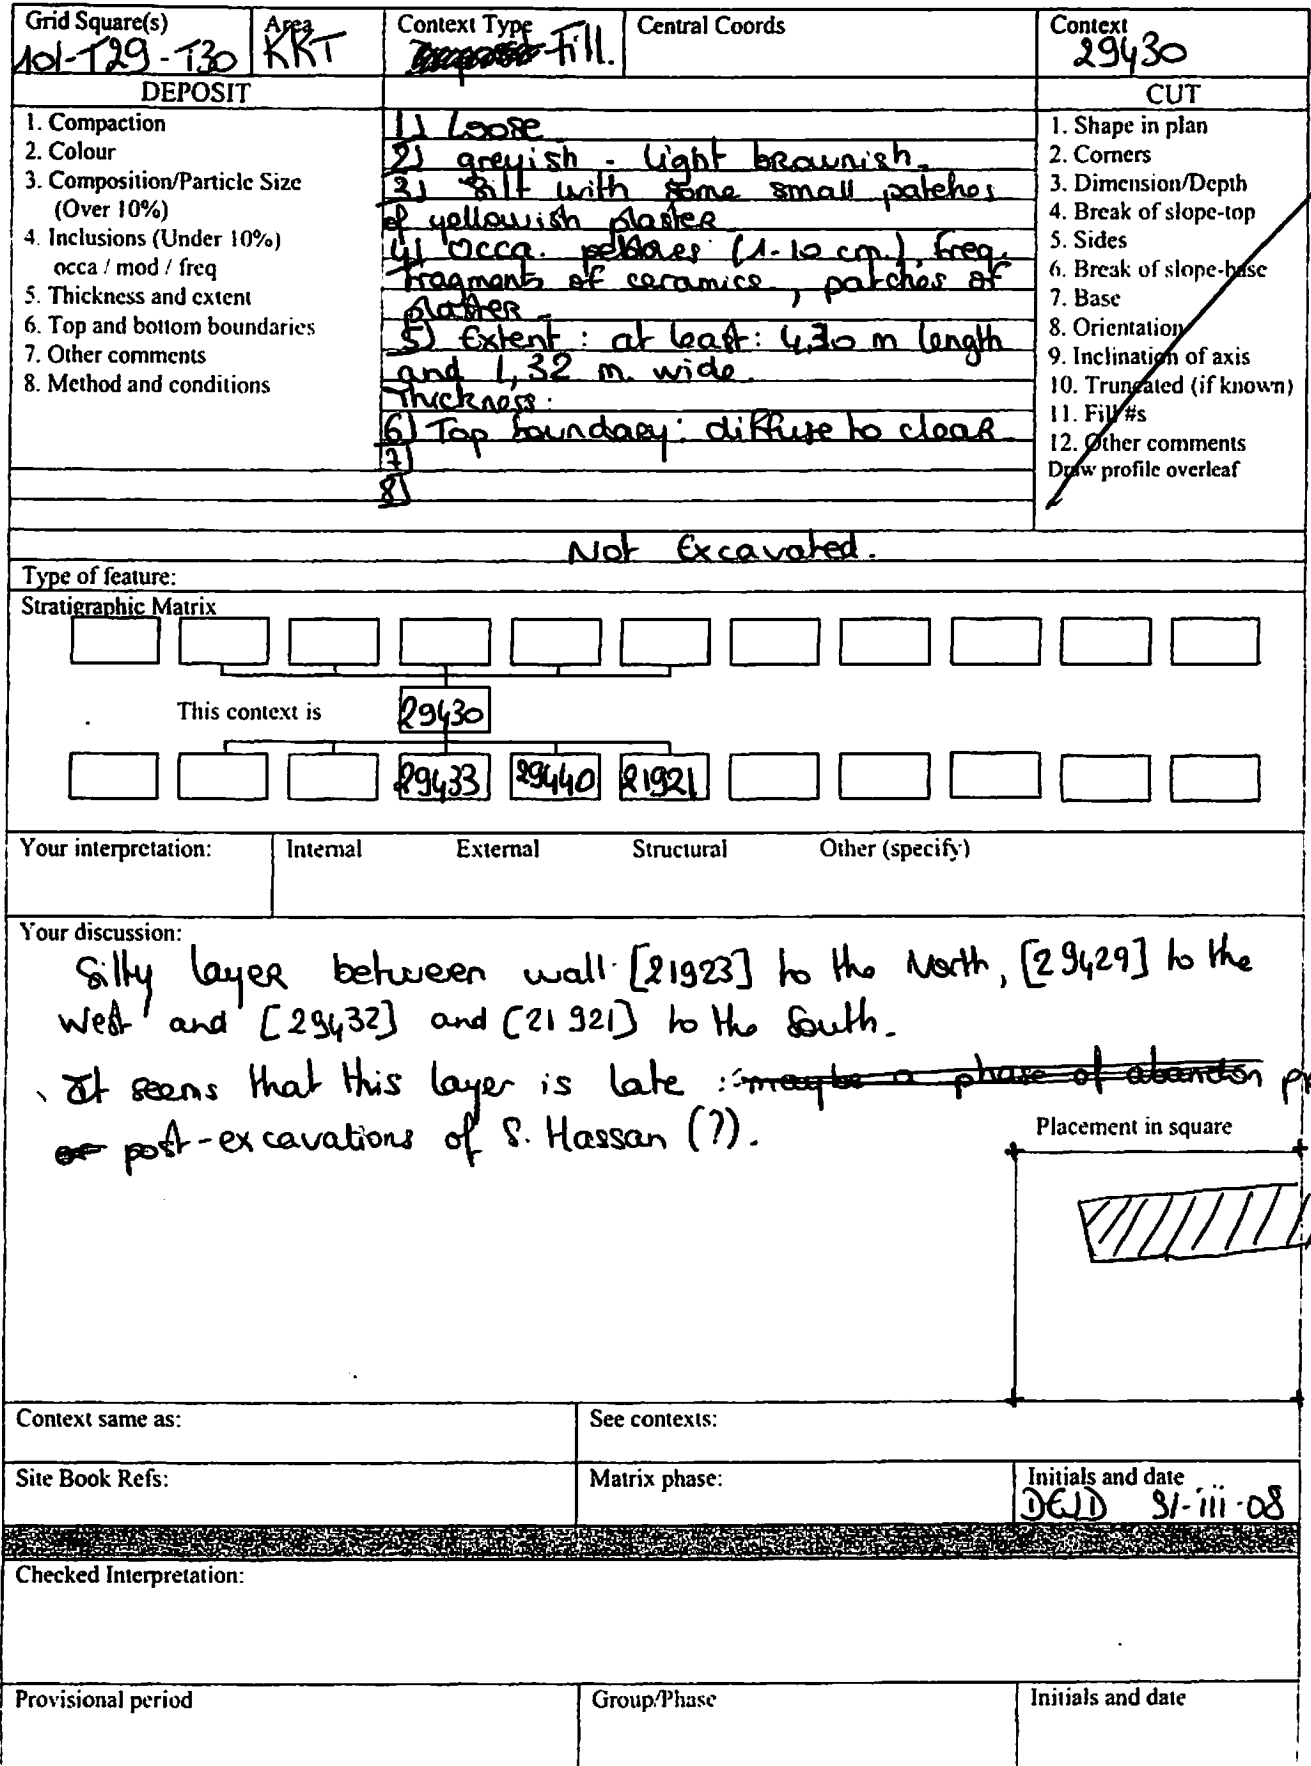 Grid Square(s)
101-T29-T30
Area
KKT
Context Type
Fill.
Central Coords
Context
29430
DEPOSIT
CUT
1. Compaction
2. Colour
3. Composition/Particle Size
(Over 10%)
4. Inclusions (Under 10%)
occa / mod / freq
5. Thickness and extent
6. Top and bottom boundaries
7. Other comments
8. Method and conditions
1) Loose
2) greyish - light brownish.
3) Silt with some small patches
of yellowish plaster
4) Occa. pebbles (1-10 cm.), freq.
fragments of ceramics, patches of
plaster.
5) Extent: at least: 4,30 m length
and 1,32 m. wide.
Thickness:
6) Top boundary: diffuse to clear
7)
8)
1. Shape in plan
2. Corners
3. Dimension/Depth
4. Break of slope-top
5. Sides
6. Break of slope-base
7. Base
8. Orientation
9. Inclination of axis
10. Truncated (if known)
11. Fill #s
12. Other comments
Draw profile overleaf
Not Excavated.
Type of feature:
Stratigraphic Matrix
This context is
29430
29433 29440 21921
Your interpretation:
Internal External Structural Other (specify)
Your discussion:
Silty layer between wall [21923] to the North, [29429] to the
West and [29432] and [21921] to the South.
It seems that this layer is late : maybe a phase of abandon
or post-excavations of S. Hassan (?).
Placement in square
Context same as:
See contexts:
Site Book Refs:
Matrix phase:
Initials and date
31-iii-08
Checked Interpretation:
Provisional period
Group/Phase
Initials and date